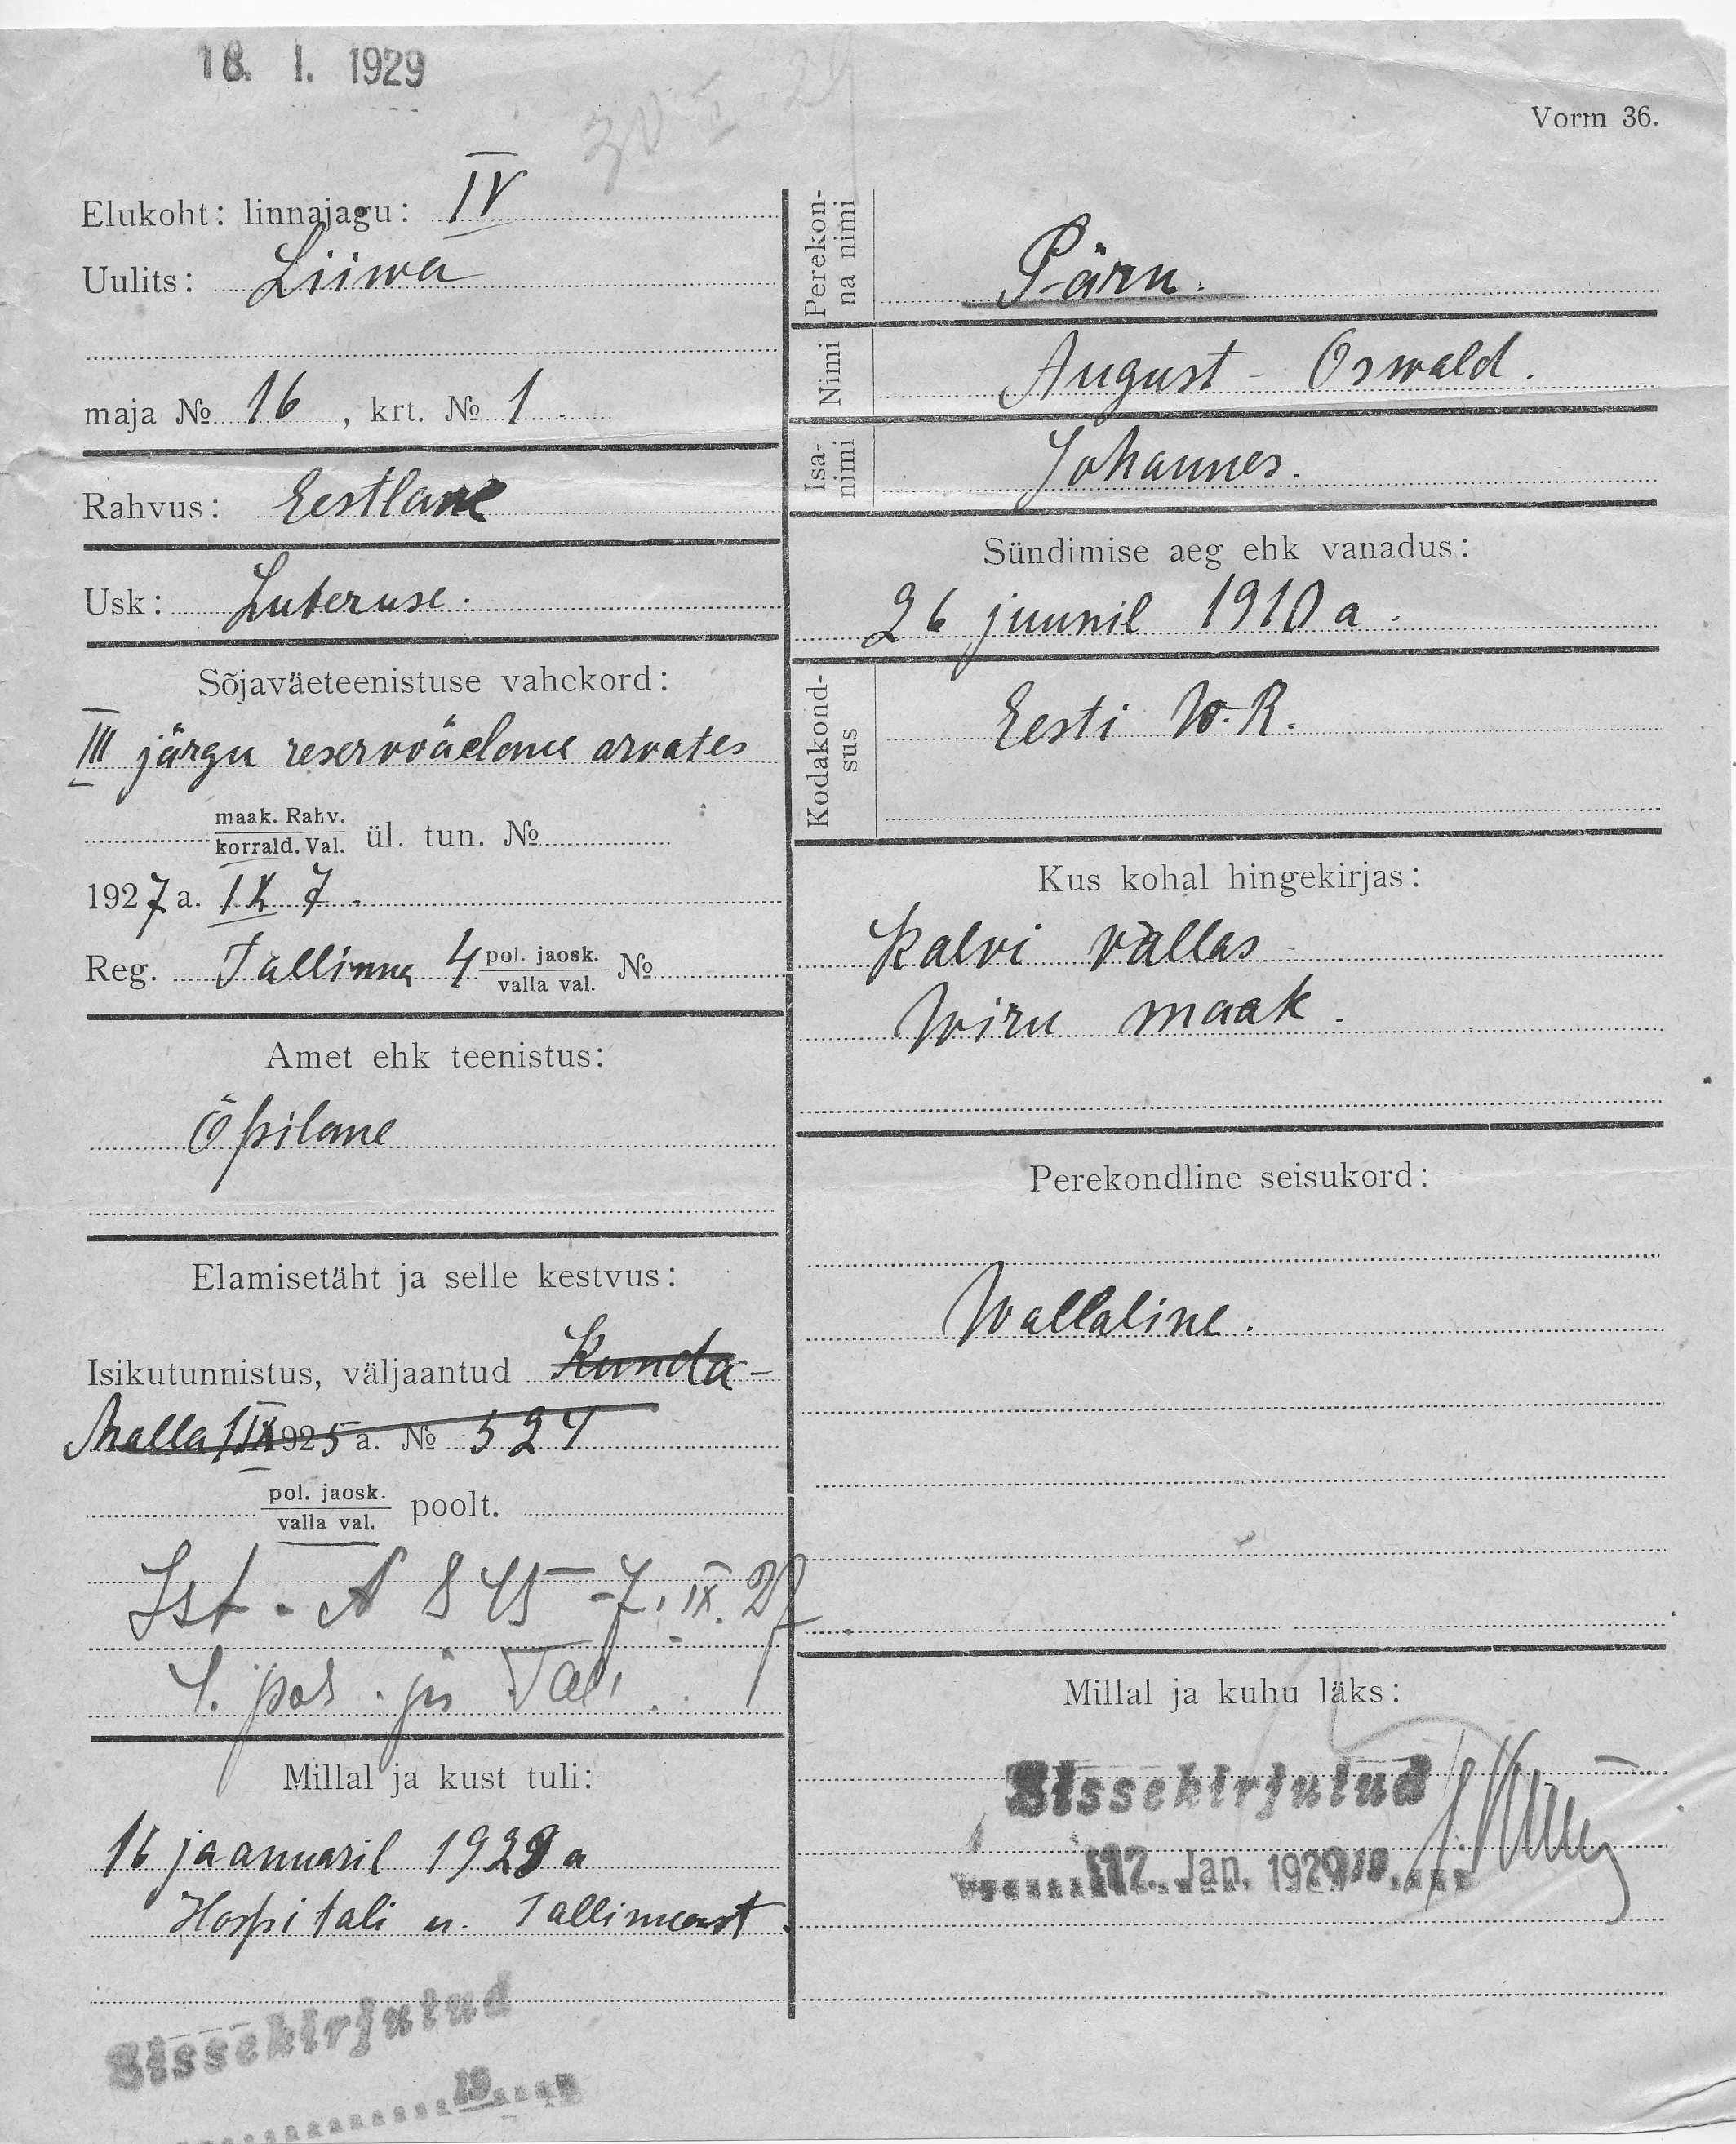 18. I. 1929
30 I 29
Vorm 36.
Elukoht: linnajagu: IV
Uulits: Liiwa
maja № 16, krt. № 1.
Rahvus: Eestlane
Usk: Luteruse.
Sõjaväeteenistuse vahekord:
III järgu reservväelane arvates
maak. Rahv.
korrald. Val. ül. tun. №
1927 a. IX 7.
Reg. Tallinna 4 pol. jaosk. №
valla val.
Amet ehk teenistus:
Õpilane
Elamisetäht ja selle kestvus:
Isikutunnistus, väljaantud Kunda-
Malla 1 IX 1925 a. № 524
pol. jaosk. poolt.
valla val.
Ist. A 845 - 7. IX. 27
4. pol. js Tal.
Millal ja kust tuli:
16 jaanuaril 1929 a
Hospitali u. Tallinnast.
Sissekirjutud
19
Perekon-
na nimi
Pärn.
Nimi
August - Oswald.
Isa-
nimi
Johannes.
Sündimise aeg ehk vanadus:
26 juunil 1910 a.
Kodakond-
sus
Eesti W.R.
Kus kohal hingekirjas:
Kalvi vallas
Wiru maak.
Perekondline seisukord:
Wallaline.
Millal ja kuhu läks:
Sissekirjutud
17. Jan. 1929